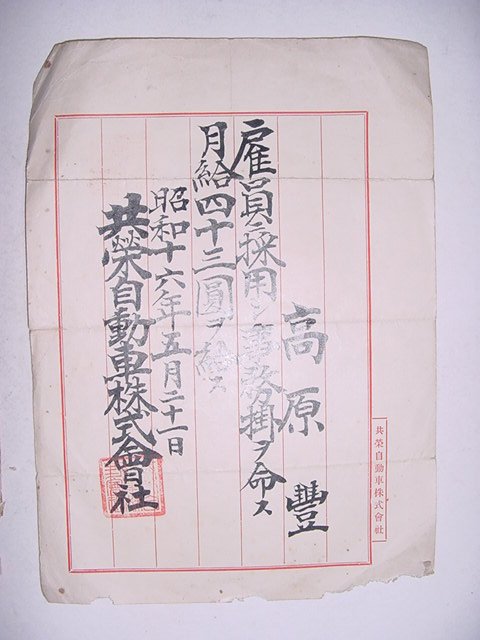 高原 豐
雇員ニ採用シ事務掛ヲ命ス
月給四十三圓ヲ給ス
昭和十六年五月二十一日
共榮自動車株式會社
共榮自動車株式會社